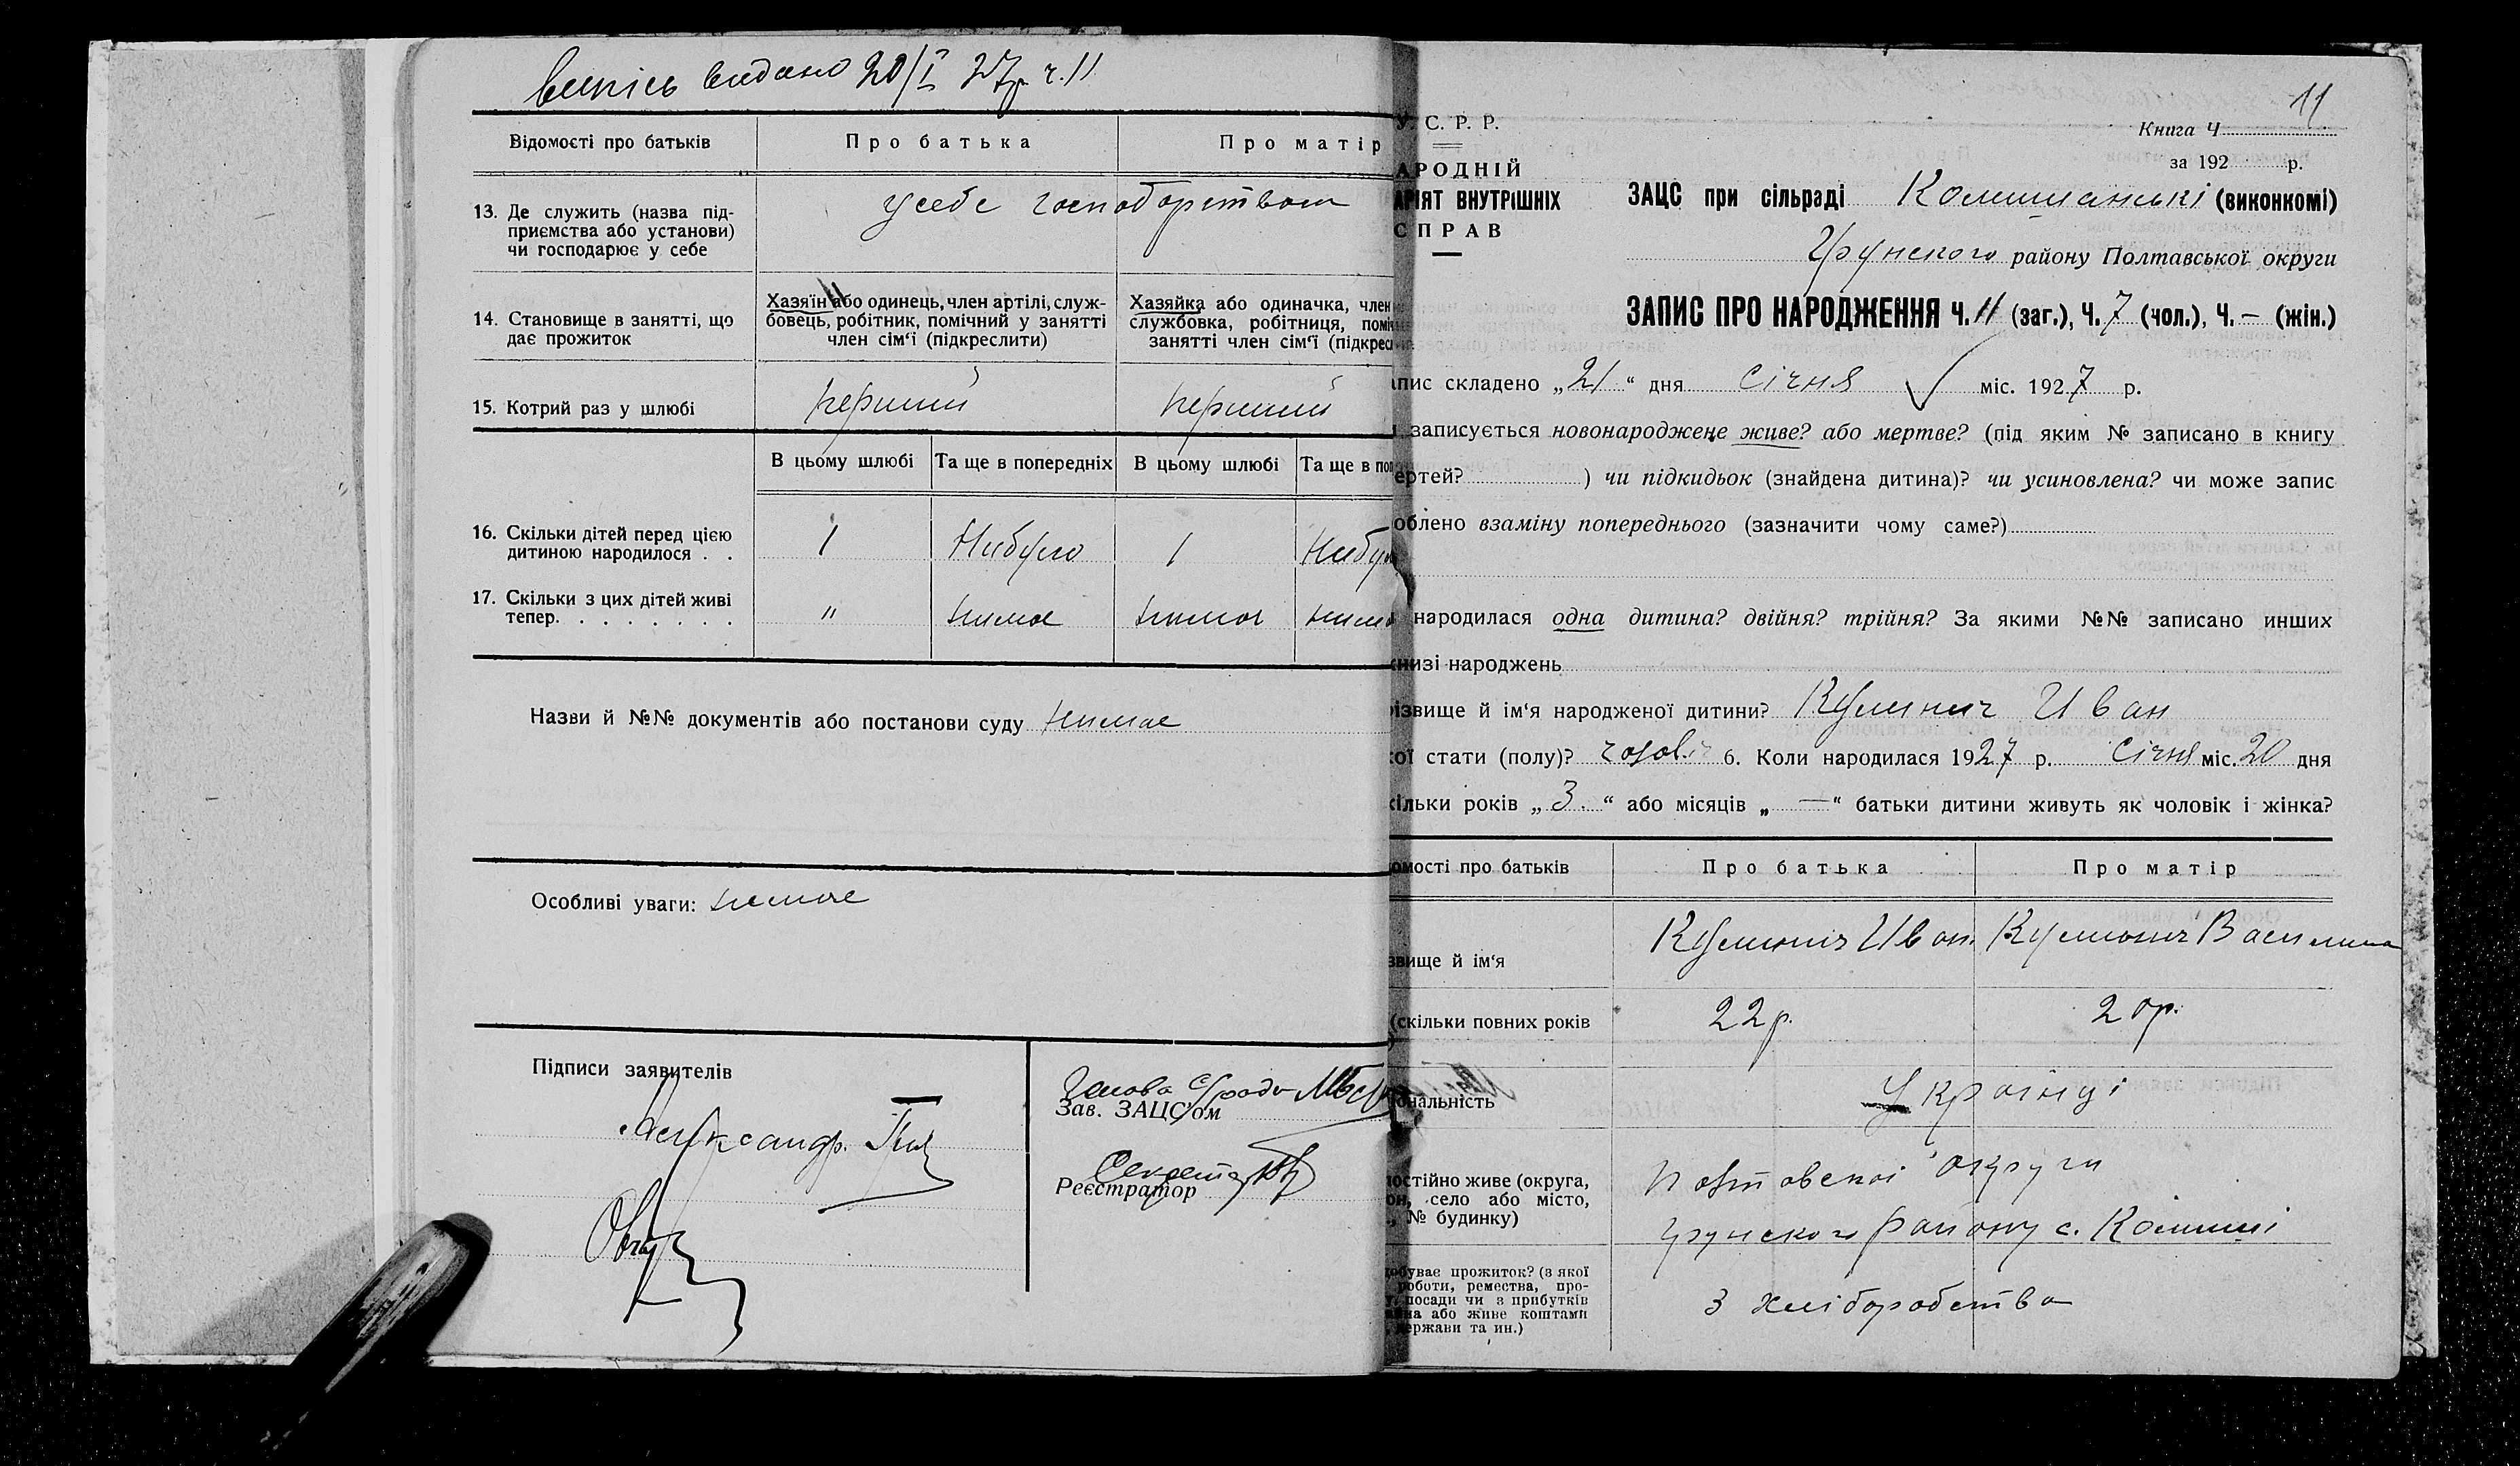 випись видано 20/I 27р ч. 11
Відомості про батьків
Про батька
Про матір
13. Де служить (назва під-
приємства або установи)
чи господарює у себе
усебе господорством
14. Становище в занятті, що
дає прожиток
Хазяїн або одинець, член артілі, служ-
бовець, робітник, помічний у занятті
член сім‘ї (підкреслити)
Хазяйка або одиначка, член
службовка, робітниця, поміч
занятті член сім‘ї (підкрес
15. Котрий раз у шлюбі
перший
перший
В цьому шлюбі
Та ще в попередніх
В цьому шлюбі
Та ще в поп
16. Скільки дітей перед цією
дитиною народилося . .
1
Небуло
1
Небул
17. Скільки з цих дітей живі
тепер. . . . . . . .
"
нимає
нимає
нима
Назви й №№ документів або постанови суду нимає
Особливі уваги: нимає
Підписи заявителів
Голова с/ради
Зав. ЗАЦС‘ом
Александр.
Секретар
Реєстратор
11
У. С. Р. Р.
Книга Ч.
за 192 р.
АРОДНІЙ
АРІЯТ ВНУТРІШНІХ
СПРАВ
ЗАЦС при сільраді Комишанські (виконкомі)
Грунского району Полтавської округи
ЗАПИС ПРО НАРОДЖЕННЯ Ч. 11 (заг.), Ч. 7 (чол.), Ч. – (жін.)
апис складено „21“ дня січня міс. 1927 р.
записується новонароджене живе? або мертве? (під яким № записано в книгу
ертей? ) чи підкидьок (знайдена дитина)? чи усиновлена? чи може запис
облено взаміну попереднього (зазначити чому саме?)
народилася одна дитина? двійня? трійня? За якими №№ записано инших
книзі народжень
різвище й ім‘я народженої дитини? Куминич Иван
кої стати (полу)? чолов. 6. Коли народилася 1927 р. Січня міс. 20 дня
кільки років „3.“ або місяців „—“ батьки дитини живуть як чоловік і жінка?
омості про батьків
Про батька
Про матір
звище й ім‘я
Иван.
Василина
(скільки повних років
22р.
20р.
ональність
Українці
постійно живе (округа,
он, село або місто,
, № будинку)
Полтовської округи
Грунского району с. Комиші
обуває прожиток? (з якої
роботи, ремества, про-
у, посади чи з прибутків
айна або живе коштами
, держави та ин.)
З хліборобства